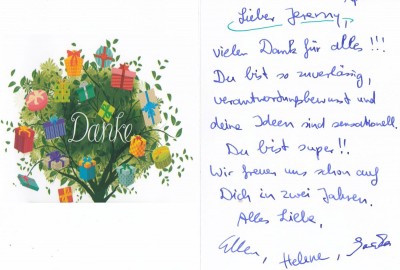 Danke
Lieber Jeremy,
vielen Dank für alles!!!
Du bist so zuverlässig,
verantwortungsbewusst und
deine Ideen sind sensationell.
Du bist super!!
Wir freuen uns schon auf
Dich in zwei Jahren.
Alles Liebe,
Ellen, Helene,